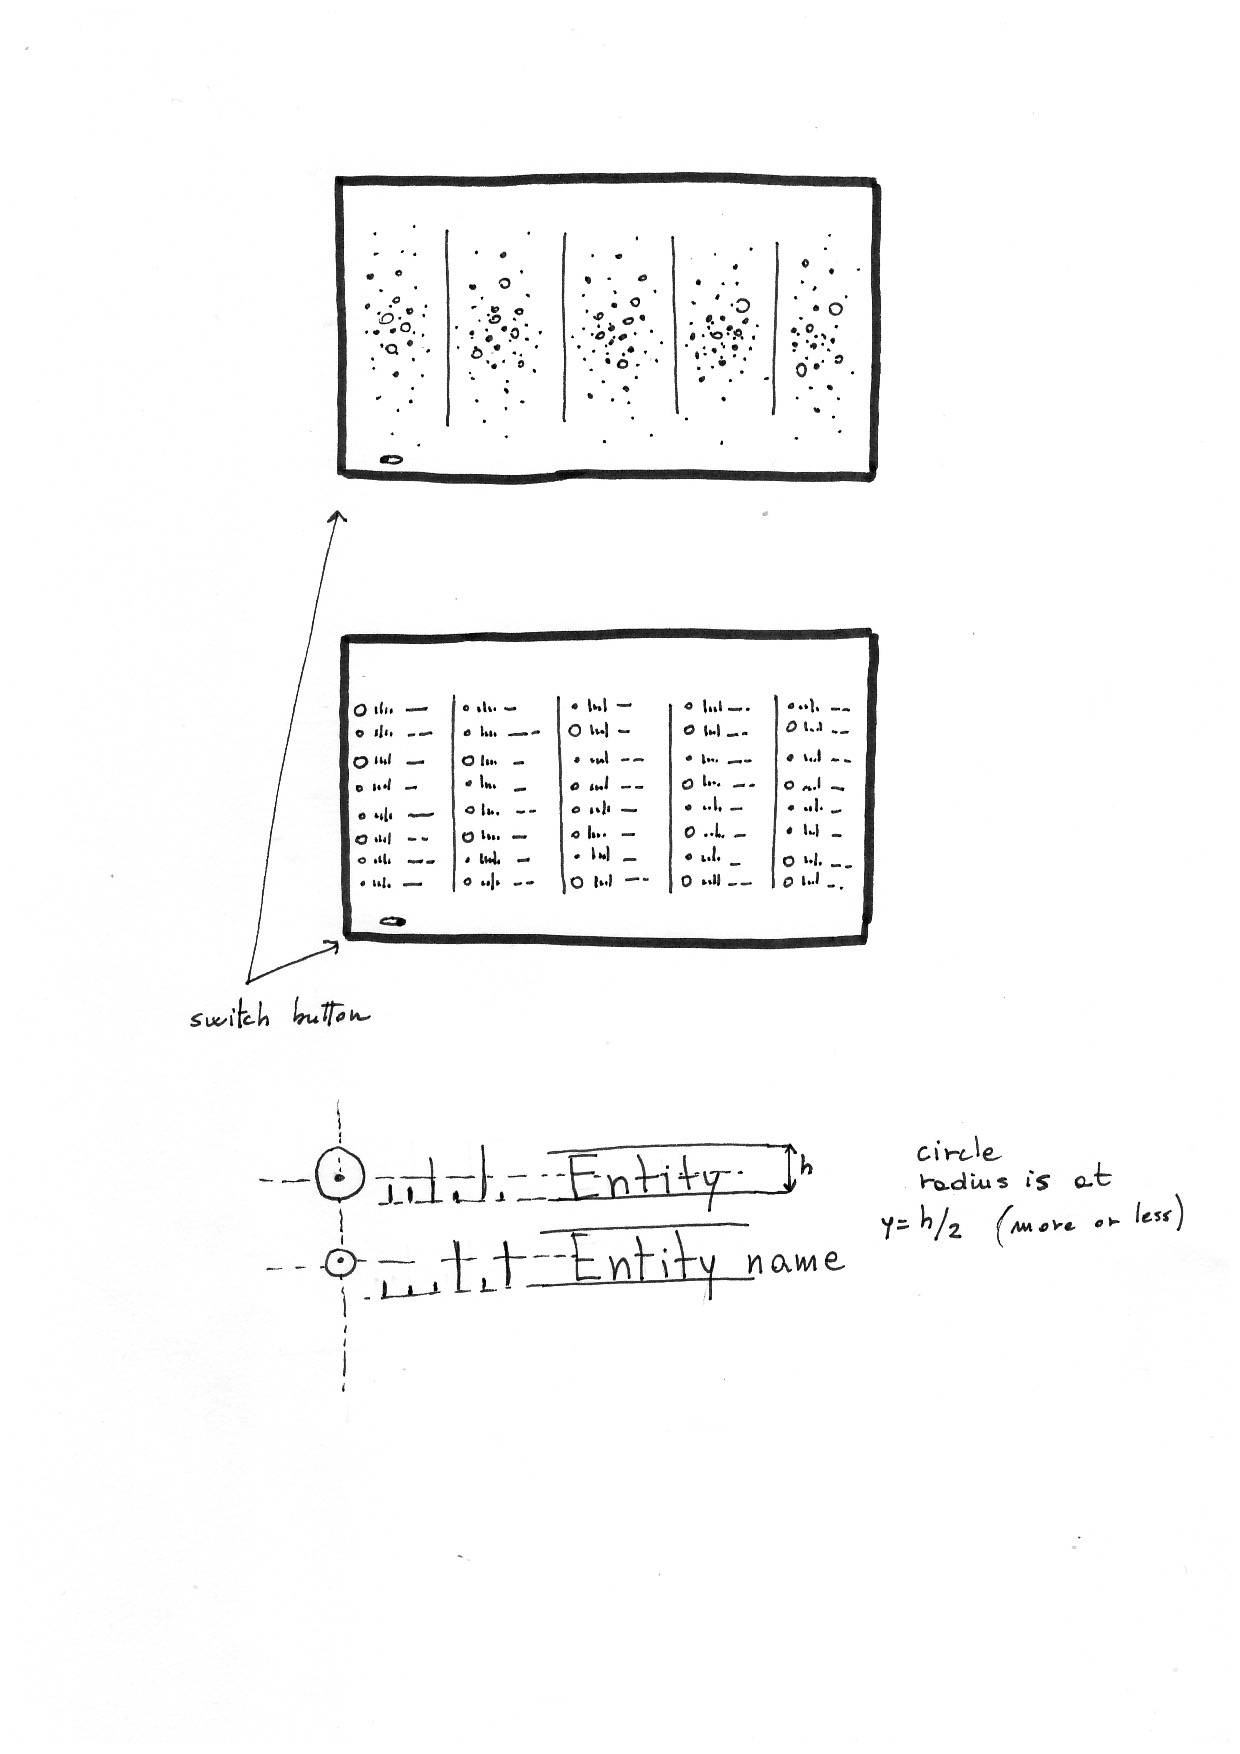 switch button
Entity
h
Entity name
circle
radius is at
y = h/2 (more or less)